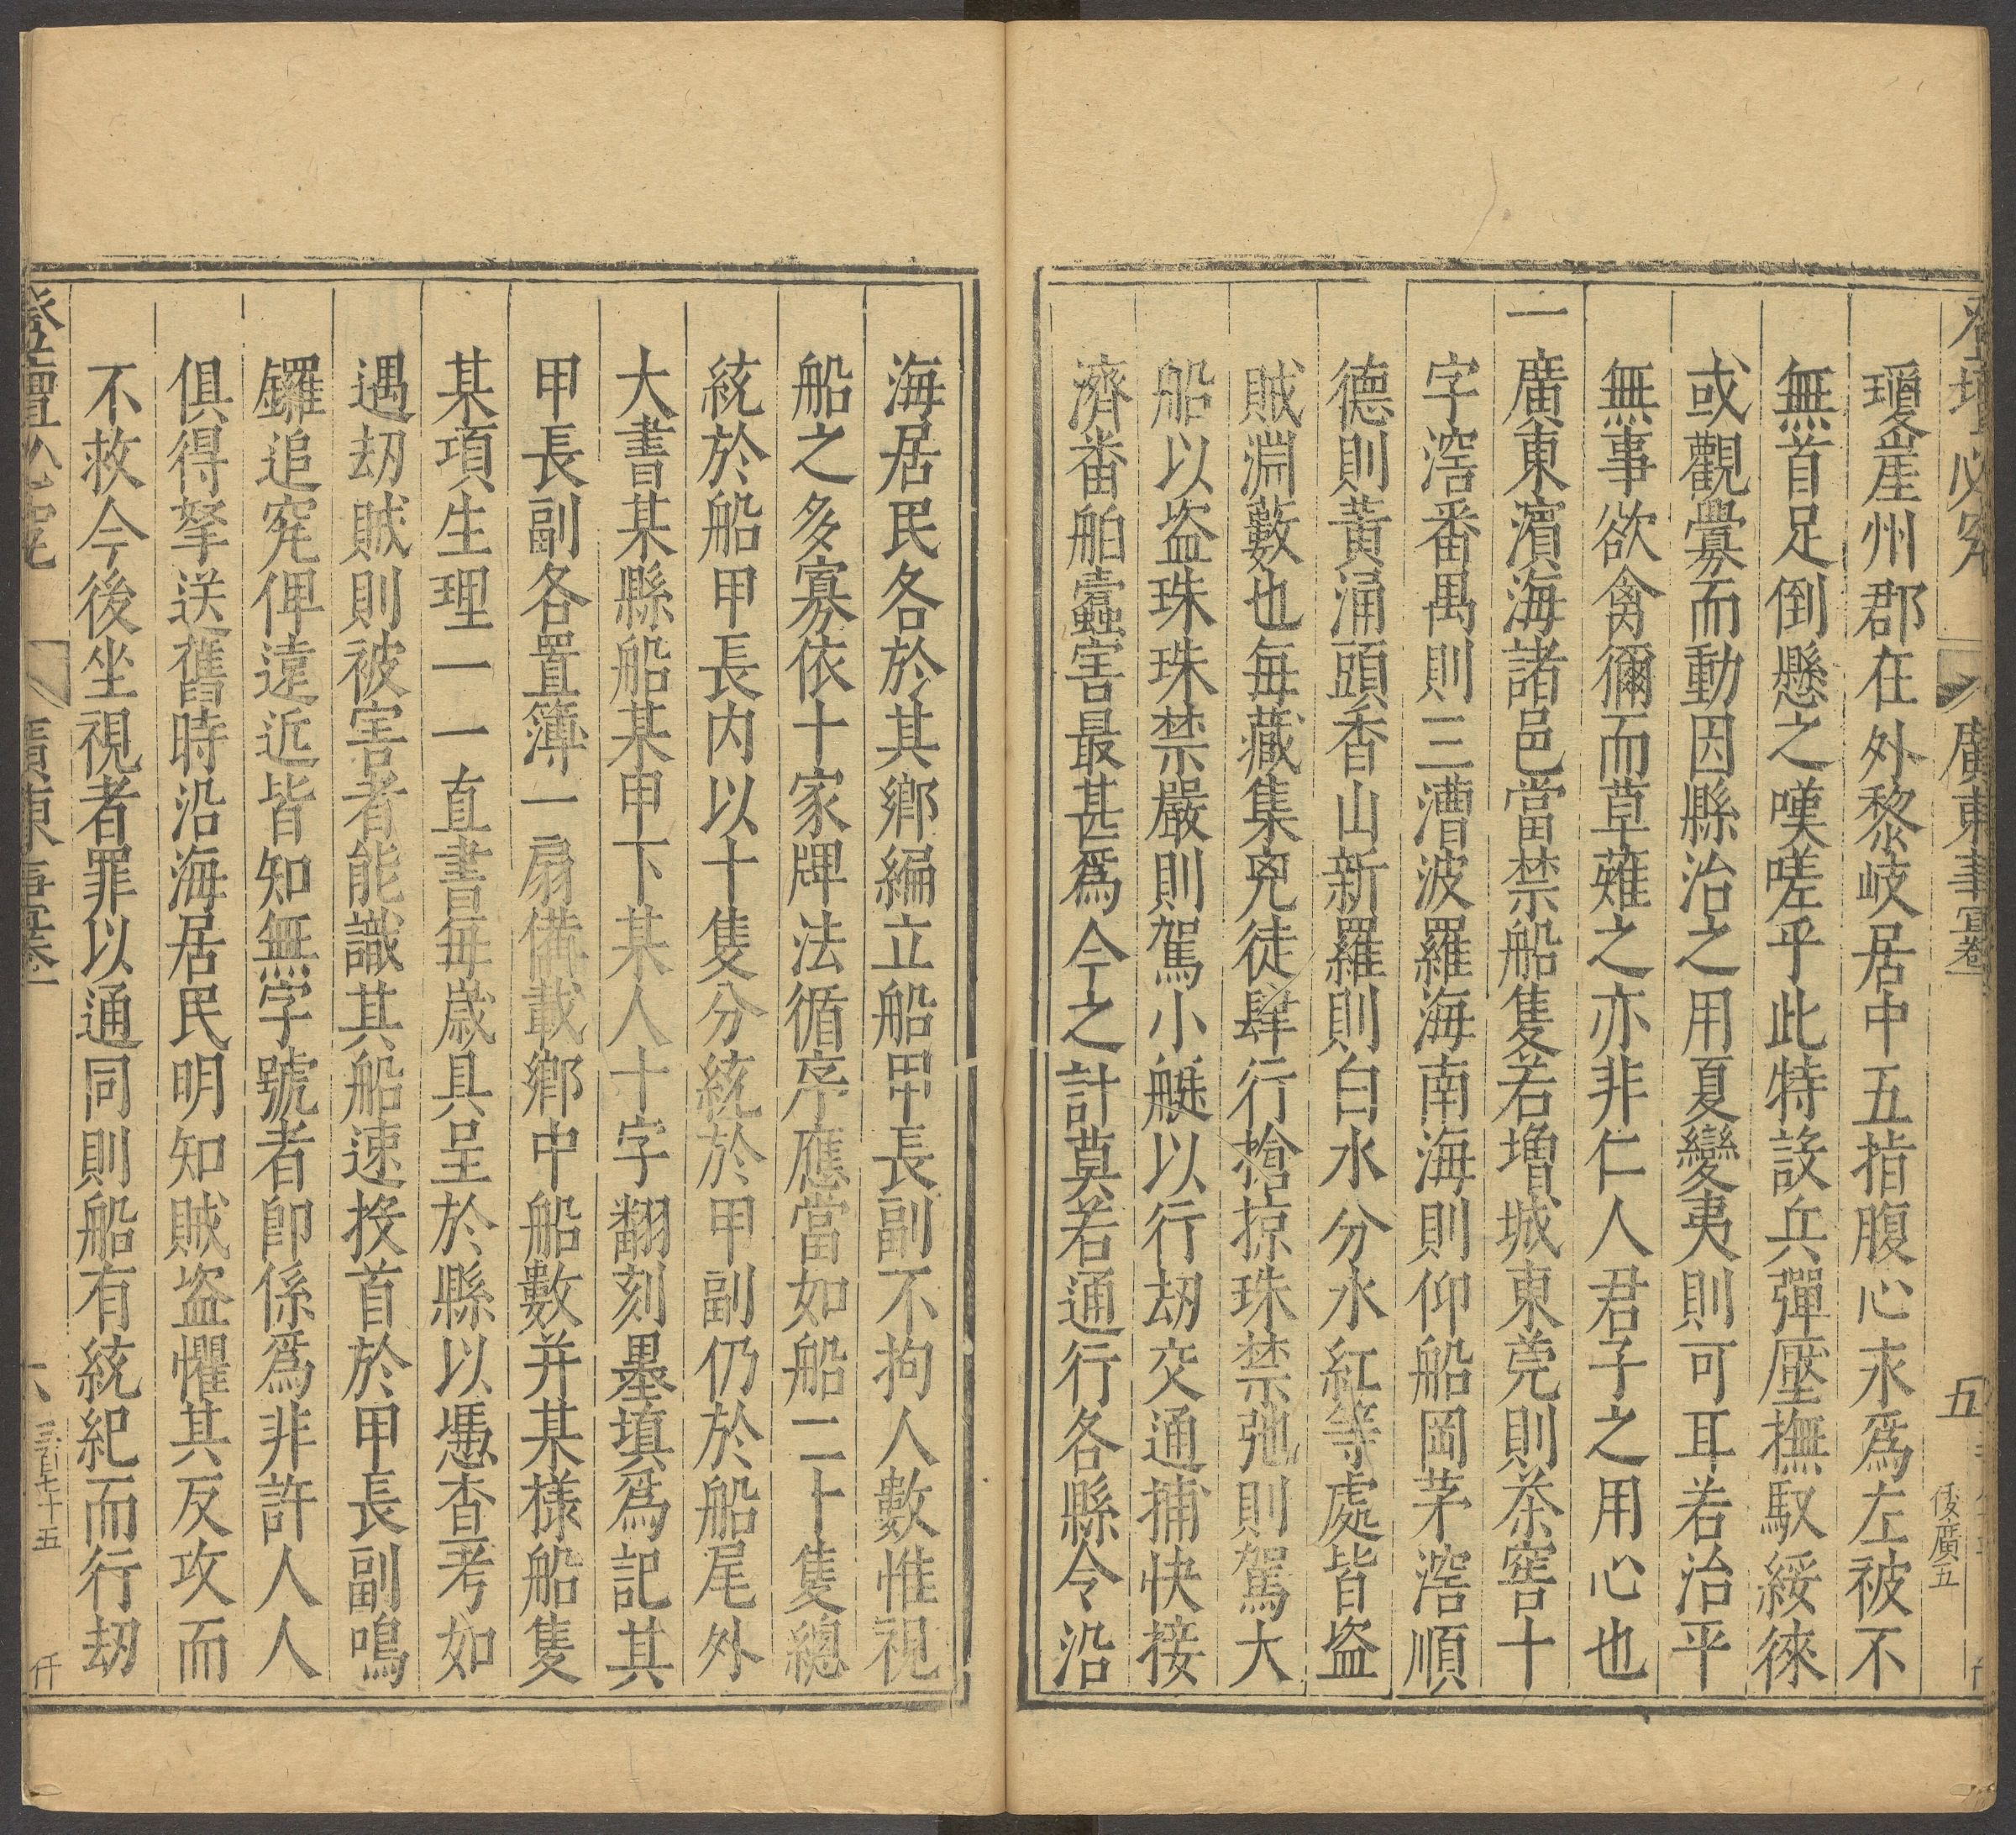 登壇必究
廣東事宜卷
五
倭廣五
瓊崖州郡在外黎岐居中五指腹心永爲左被不
無首足倒懸之嘆嗟乎此特設兵彈壓撫馭綏徠
或觀釁而動因縣治之用夏變夷則可耳若治平
無事欲禽獮而草薙之亦非仁人君子之用心也
一廣東濱海諸邑當禁船隻若增城東莞則茶窖十
字滘番禺則三漕波羅海南海則仰船岡茅滘順
德則黃涌頭香山新羅則白水分水紅等處皆盗
賊淵藪也每藏集兇徒肆行搶掠珠禁弛則駕大
船以盗珠珠禁嚴則駕小艇以行刼交通捕快接
濟番舶蠹害最甚爲今之計莫若通行各縣令沿
海居民各於其鄉編立船甲長副不拘人數惟視
船之多寡依十家牌法循序應當如船二十隻總
統於船甲長内以十隻分統於甲副仍於船尾外
大書某縣船某甲下某人十字翻刻墨填爲記其
甲長副各置簿一扇備載鄉中船數并某樣船隻
某項生理一一直書每歲具呈於縣以憑查考如
遇刼賊則被害者能識其船速投首於甲長副鳴
鑼追究俾遠近皆知無字號者卽係爲非許人人
俱得拏送舊時沿海居民明知賊盗懼其反攻而
不救今後坐視者罪以通同則船有統紀而行刼
登壇必究
廣東事宜卷
六
三百七十五
仟